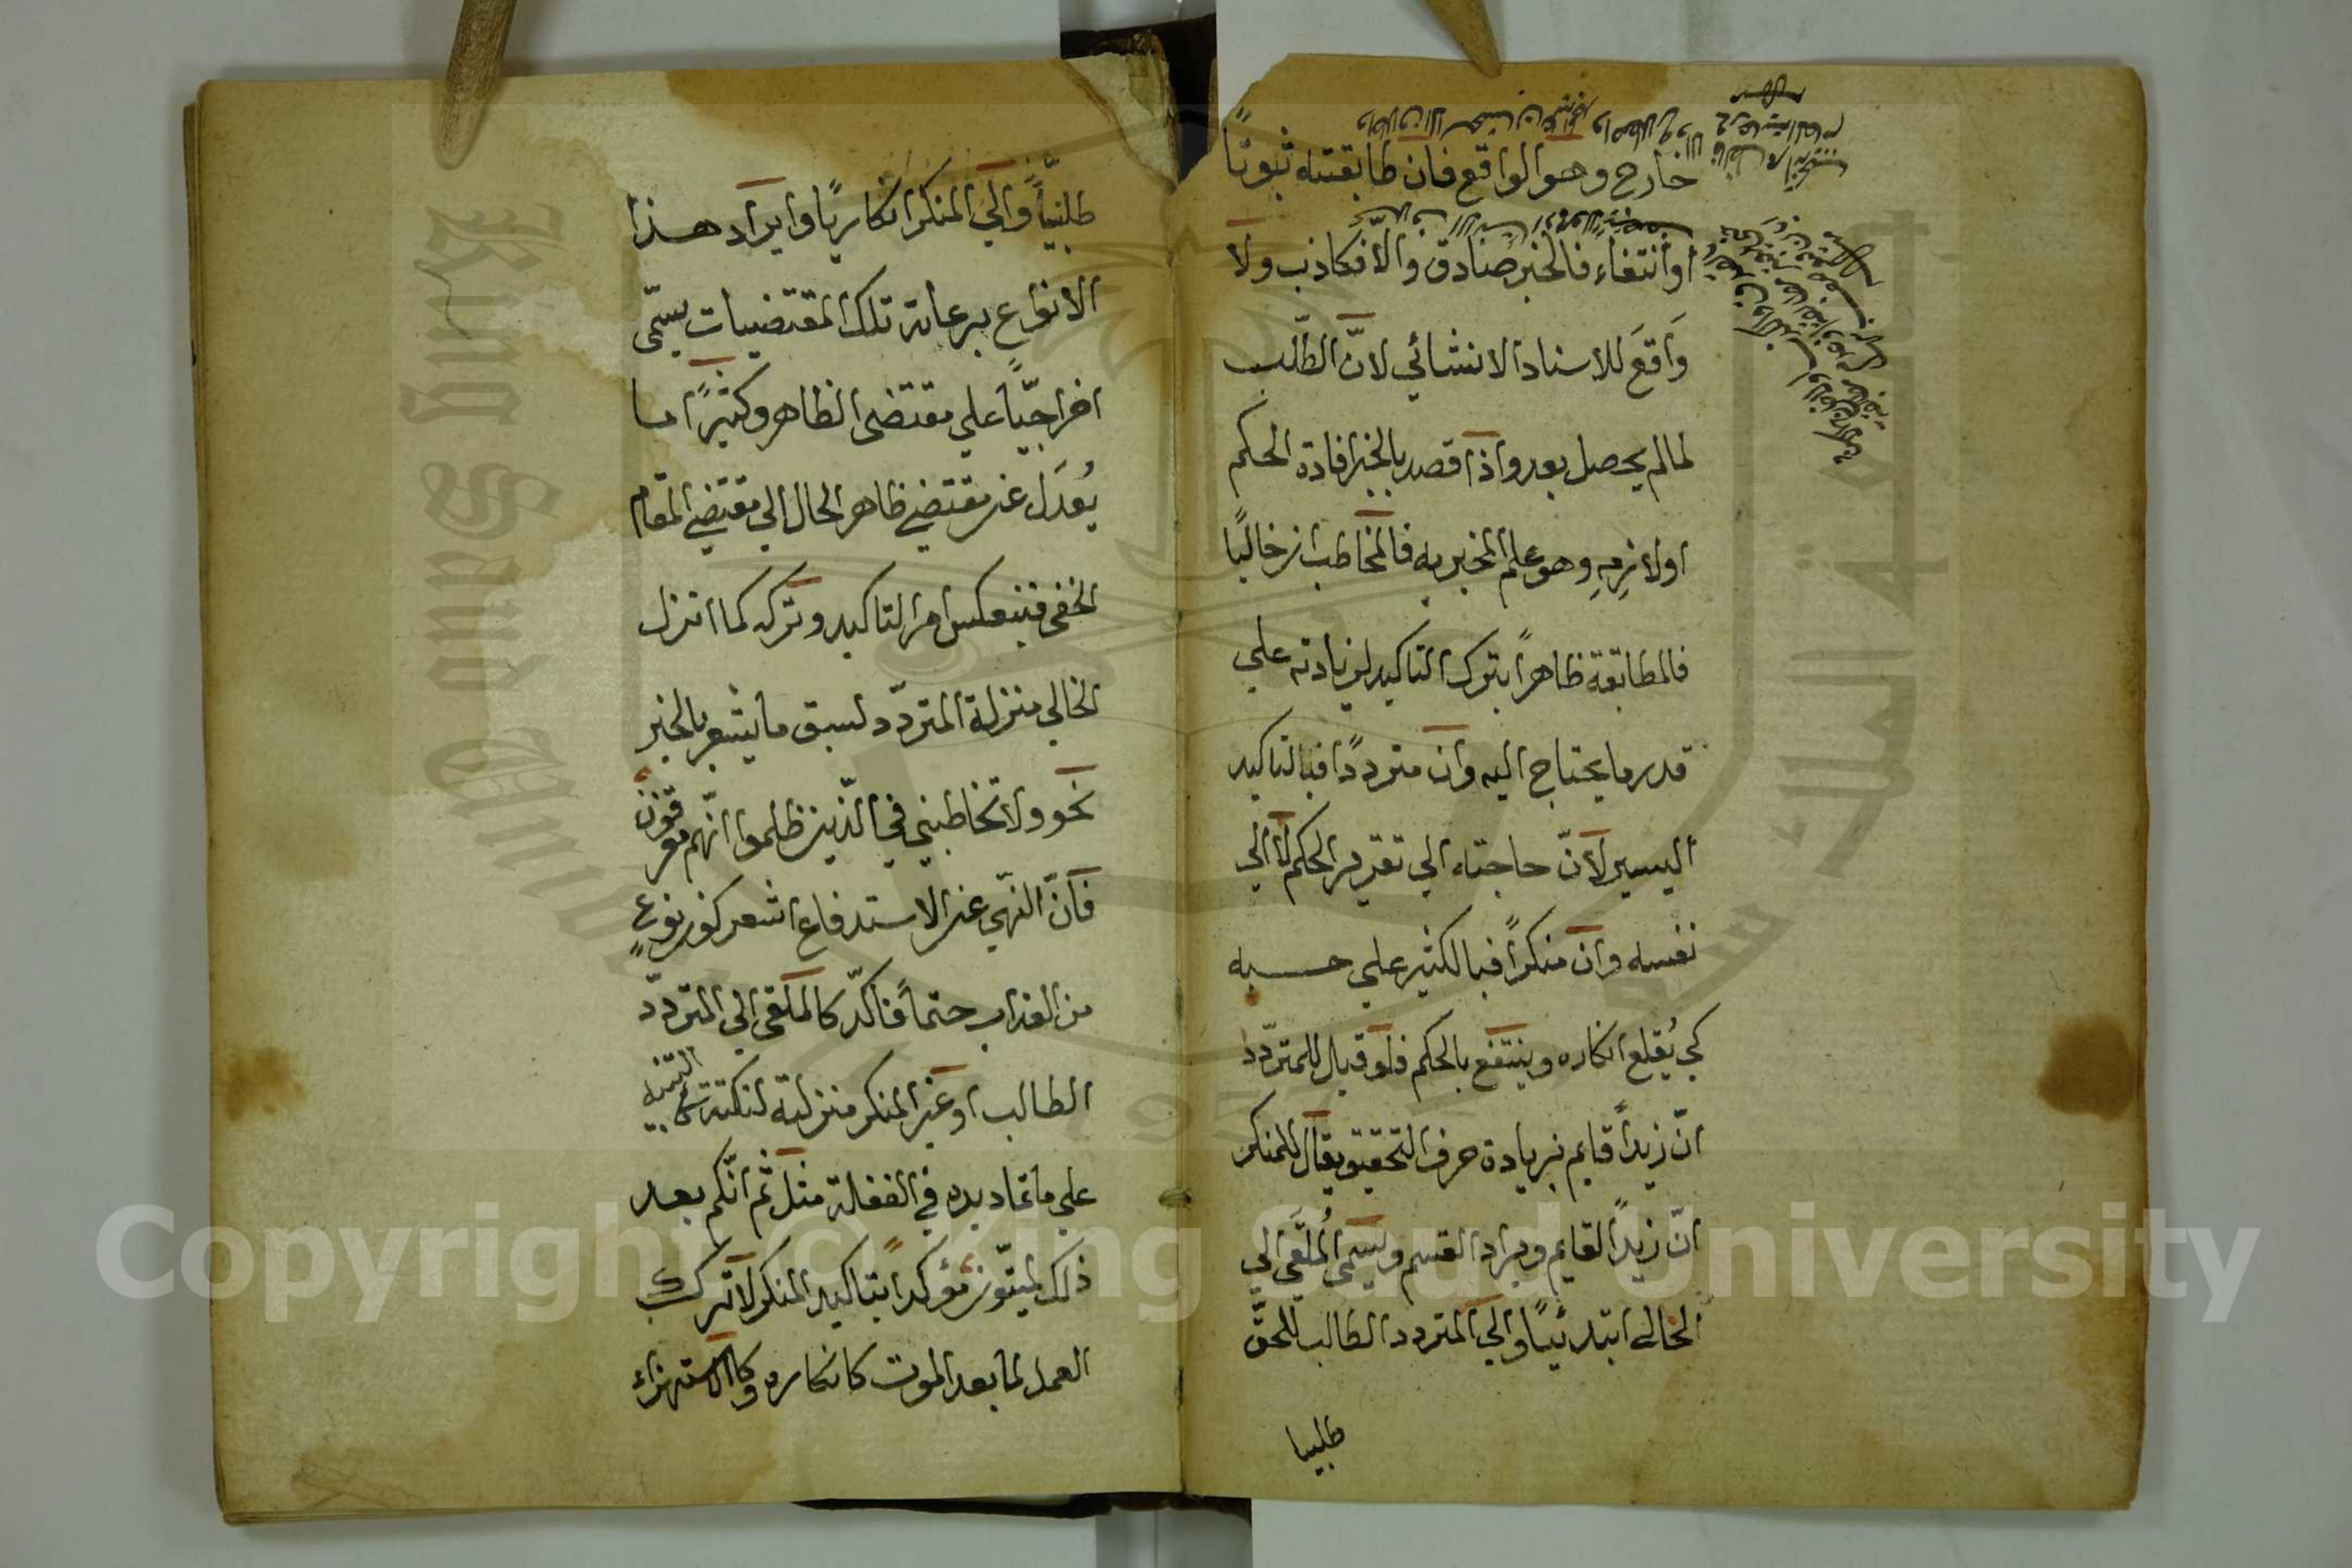 خارج وهو الواقع فان طابقته ثبوتًا
او أنتفاء فالخبر صادق والّا فكاذب ولا
وَاقعَ للاسناد الانشائي لانّ الطّلب
لما لم يحصل بعد واذا قصد بالخبر افادة الحكم
او لازِمِهِ وهو علم المخبر به فالمخاطب ان خاليًا
فالمطابقة ظاهرًا بترك التاكيد لزيادته علي
قدر ما يحتاج اليه وان مترددًا فبالتاكيد
اليسير لانّ حاجته الي تقرير الحكم لا الي
نفسه وان منكرًا فبالكثير علي حسبه
كي يُقلع انكاره وينتفع بالحكم فلو قيل للمتردّد
انّ زيدًا قايم بزيادة حرف التحقيق يقال للمنكر
انّ زيدًا لقايم ويراد القسم ويسمى المُلقَى الي
الخالي ابتدائيًا والي المتردد الطالب للحقّ
طلبيا
طلبيّاً والي المنكر انكاريًا وايراد هذا
الانواع برعاية تلك المقتضيات يسمّى
اخراجيّاً علي مقتضى الظاهر وكثيرًا ما
يُعدَل عن مقتضي ظاهر الحال الي مقتضي المقام
الخفى فينعكس امر التاكيد وتركه كما انزل
الخالي منزلة المتردّد لسبق ما يشعر بالخبر
نحو ولا تخاطبني في الّذين ظلموا انّهم مغرقون
فانّ النّهي عن الاستدفاع اشعر كون نوعٍ
من العذاب حتماً فاكّد كالملقى الي المتردّد
الطالب او غير المنكر منزلته لنكتة كالتنبيه
علي ماتماديه في الغفلة مثل ثم انّكم بعد
ذلك لميّتون مؤكدًا بتاكيد المنكر لا ترك
العمل لما بعد الموت كانكاره وكالاستهزاء
Copyright © King Saud University
King Saud University
1957